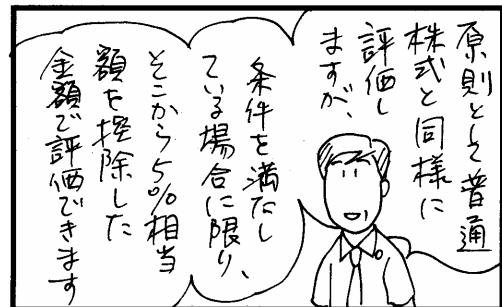 原則として普通
株式と同様に
評価し
ますが、
条件を満たし
ている場合に限り、
そこから5%相当
額を控除した
金額で評価できます